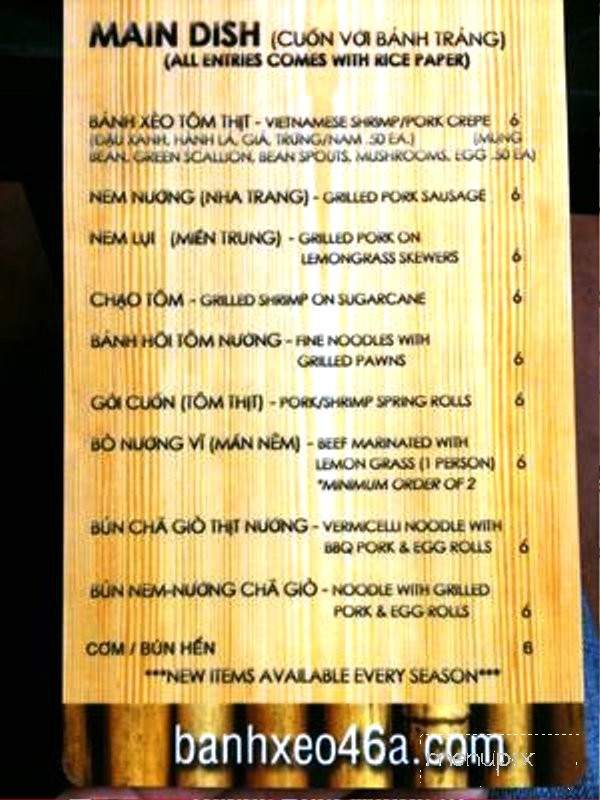 MAIN DISH (CUỐN VỚI BÁNH TRÁNG)
(ALL ENTRIES COMES WITH RICE PAPER)
BÁNH XÈO TÔM THỊT - VIETNAMESE SHRIMP/PORK CREPE 6
(ĐẬU XANH, HÀNH LÁ, GIÁ, TRỨNG/NẤM .50 EA.) (MUNG
BEAN, GREEN SCALLION, BEAN SPOUTS, MUSHROOMS, EGG .50 EA)
NEM NƯỚNG (NHA TRANG) - GRILLED PORK SAUSAGE 6
NEM LỤI (MIỀN TRUNG) - GRILLED PORK ON
LEMONGRASS SKEWERS 6
CHẠO TÔM - GRILLED SHRIMP ON SUGARCANE 6
BÁNH HỎI TÔM NƯỚNG - FINE NOODLES WITH
GRILLED PAWNS 6
GỎI CUỐN (TÔM THỊT) - PORK/SHRIMP SPRING ROLLS 6
BÒ NƯỚNG VĨ (MẮN NÊM) - BEEF MARINATED WITH
LEMON GRASS (1 PERSON) 6
*MINIMUM ORDER OF 2
BÚN CHẢ GIÒ THỊT NƯỚNG - VERMICELLI NOODLE WITH
BBQ PORK & EGG ROLLS 6
BÚN NEM-NƯỚNG CHẢ GIÒ - NOODLE WITH GRILLED
PORK & EGG ROLLS 6
CƠM / BÚN HẾN 6
***NEW ITEMS AVAILABLE EVERY SEASON***
banhxeo46a.com
menupix